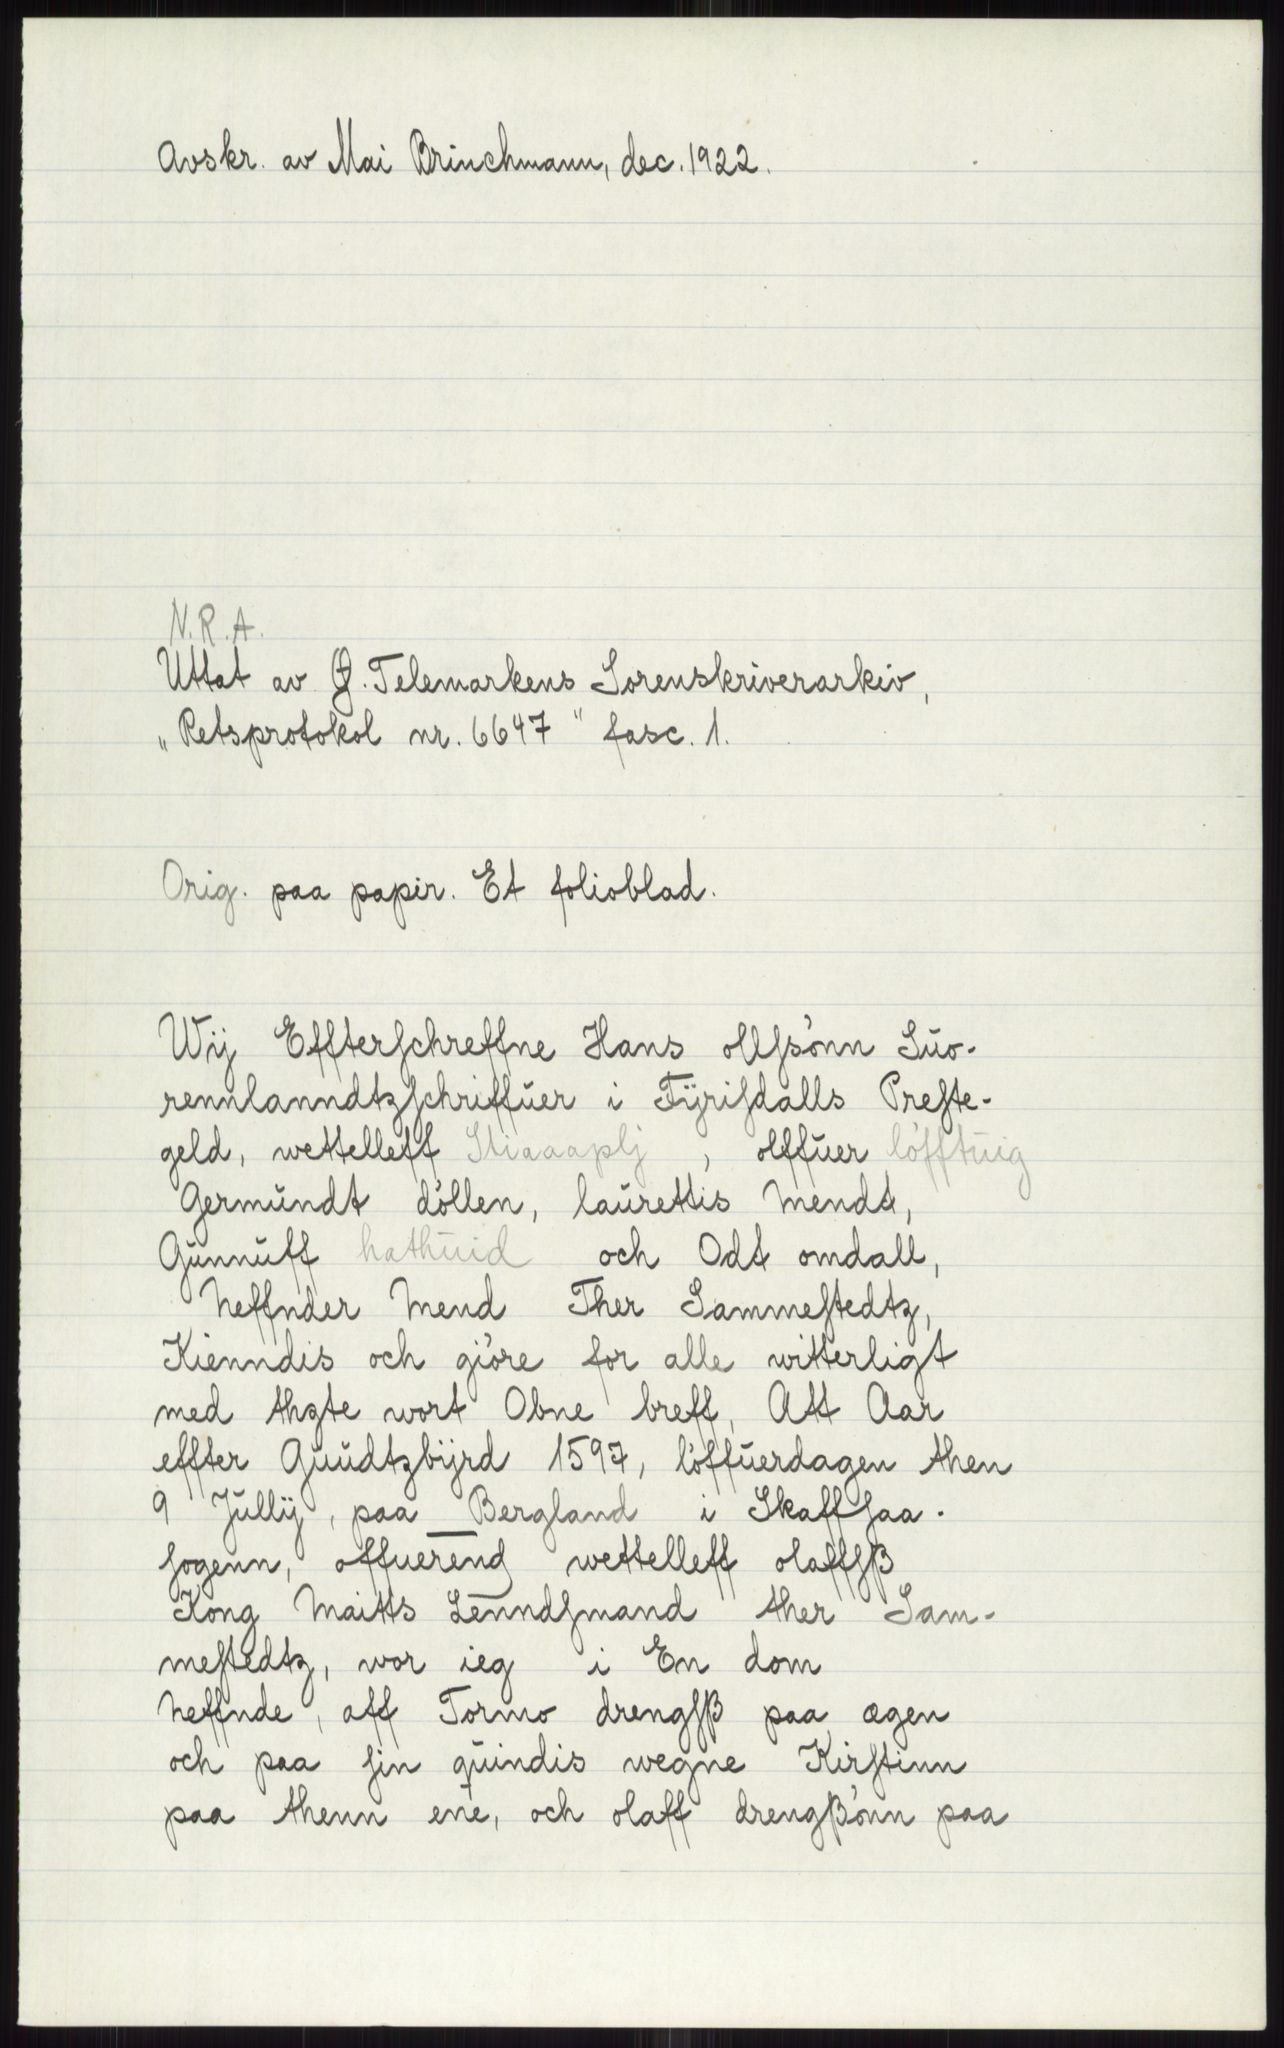 Avskr. av Mai Brinchmann, dec. 1922.
N.R.A.
Uttat av Ø. Telemarkens Sorenskriverarkiv,
„Retsprotokol nr. 6647" fasc. 1.
Orig. paa papir. Et folioblad.
Wij Effterſchreffne Hans ollſsönn Suo-
rennlanndtzſchriffuer i Fÿriſdalls Preſte-
geld, wettelleff , olffuer löfftuig
Germundt döllen, laurettis Mendt,
Gunnuff hathuid och Odt omdall,
Neffnder Mend Ther Sammeſtedtz,
Kienndis och giöre for alle witterligt
med thzte wort Obne breff, Att Aar
effter Guudtzbijrd 1597, löffuerdagen then
9 Jullij, paa Bergland i Skaffſaa-
ſogenn, offuerend wettelleff olaffſβ
Kong Maitts Lenndſmand ther Sam-
meſtedtz, wor ieg i En dom
Neffnde, aff Tormo drengſβ paa ægen
och paa ſin quindis wegne Kirſtinn
paa thenn ene, och olaff drengβönn paa